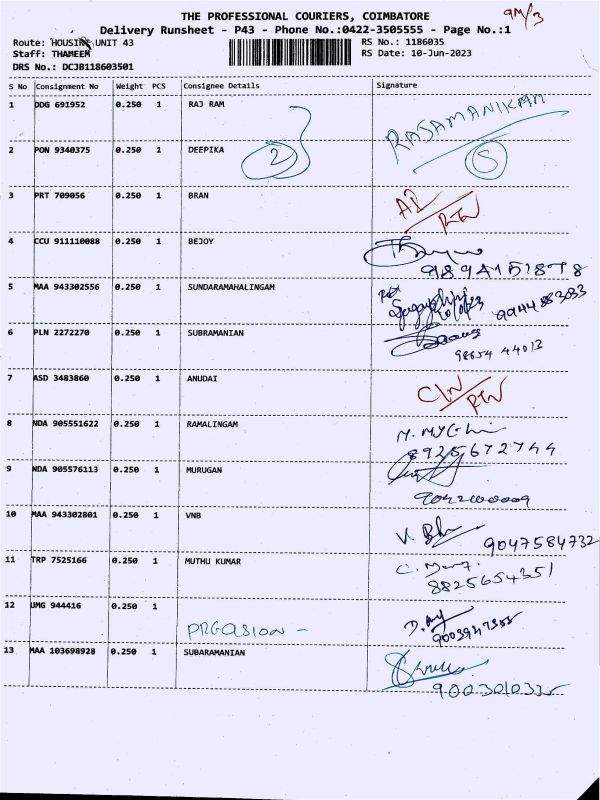 THE PROFESSIONAL COURIERS, COIMBATORE
9M/3
Delivery Runsheet - P43 - Phone No.:0422-3505555 - Page No.:1
Route: HOUSING UNIT 43
RS No.: 1186035
Staff: THAMEEM
RS Date: 10-Jun-2023
DRS No.: DCJB118603501
S No Consignment No Weight PCS Consignee Details Signature
1 DDG 691952 0.250 1 RAJ RAM RASAMANIKAM
2 PON 9340375 0.250 1 DEEPIKA 2 5
3 PRT 709056 0.250 1 BRAN
4 CCU 911110088 0.250 1 BEJOY
9894151878
5 MAA 943302556 0.250 1 SUNDARAMAHALINGAM
9944883033
6 PLN 2272270 0.250 1 SUBRAMANIAN
98654 44013
7 ASD 3483860 0.250 1 ANUDAI
8 NDA 905551622 0.250 1 RAMALINGAM
8925672744
9 NDA 905576113 0.250 1 MURUGAN
10 MAA 943302801 0.250 1 VNB
9047584732
11 TRP 7525166 0.250 1 MUTHU KUMAR
8825654351
12 UMG 944416 0.250 1
13 MAA 103698928 0.250 1 SUBARAMANIAN
9003010335